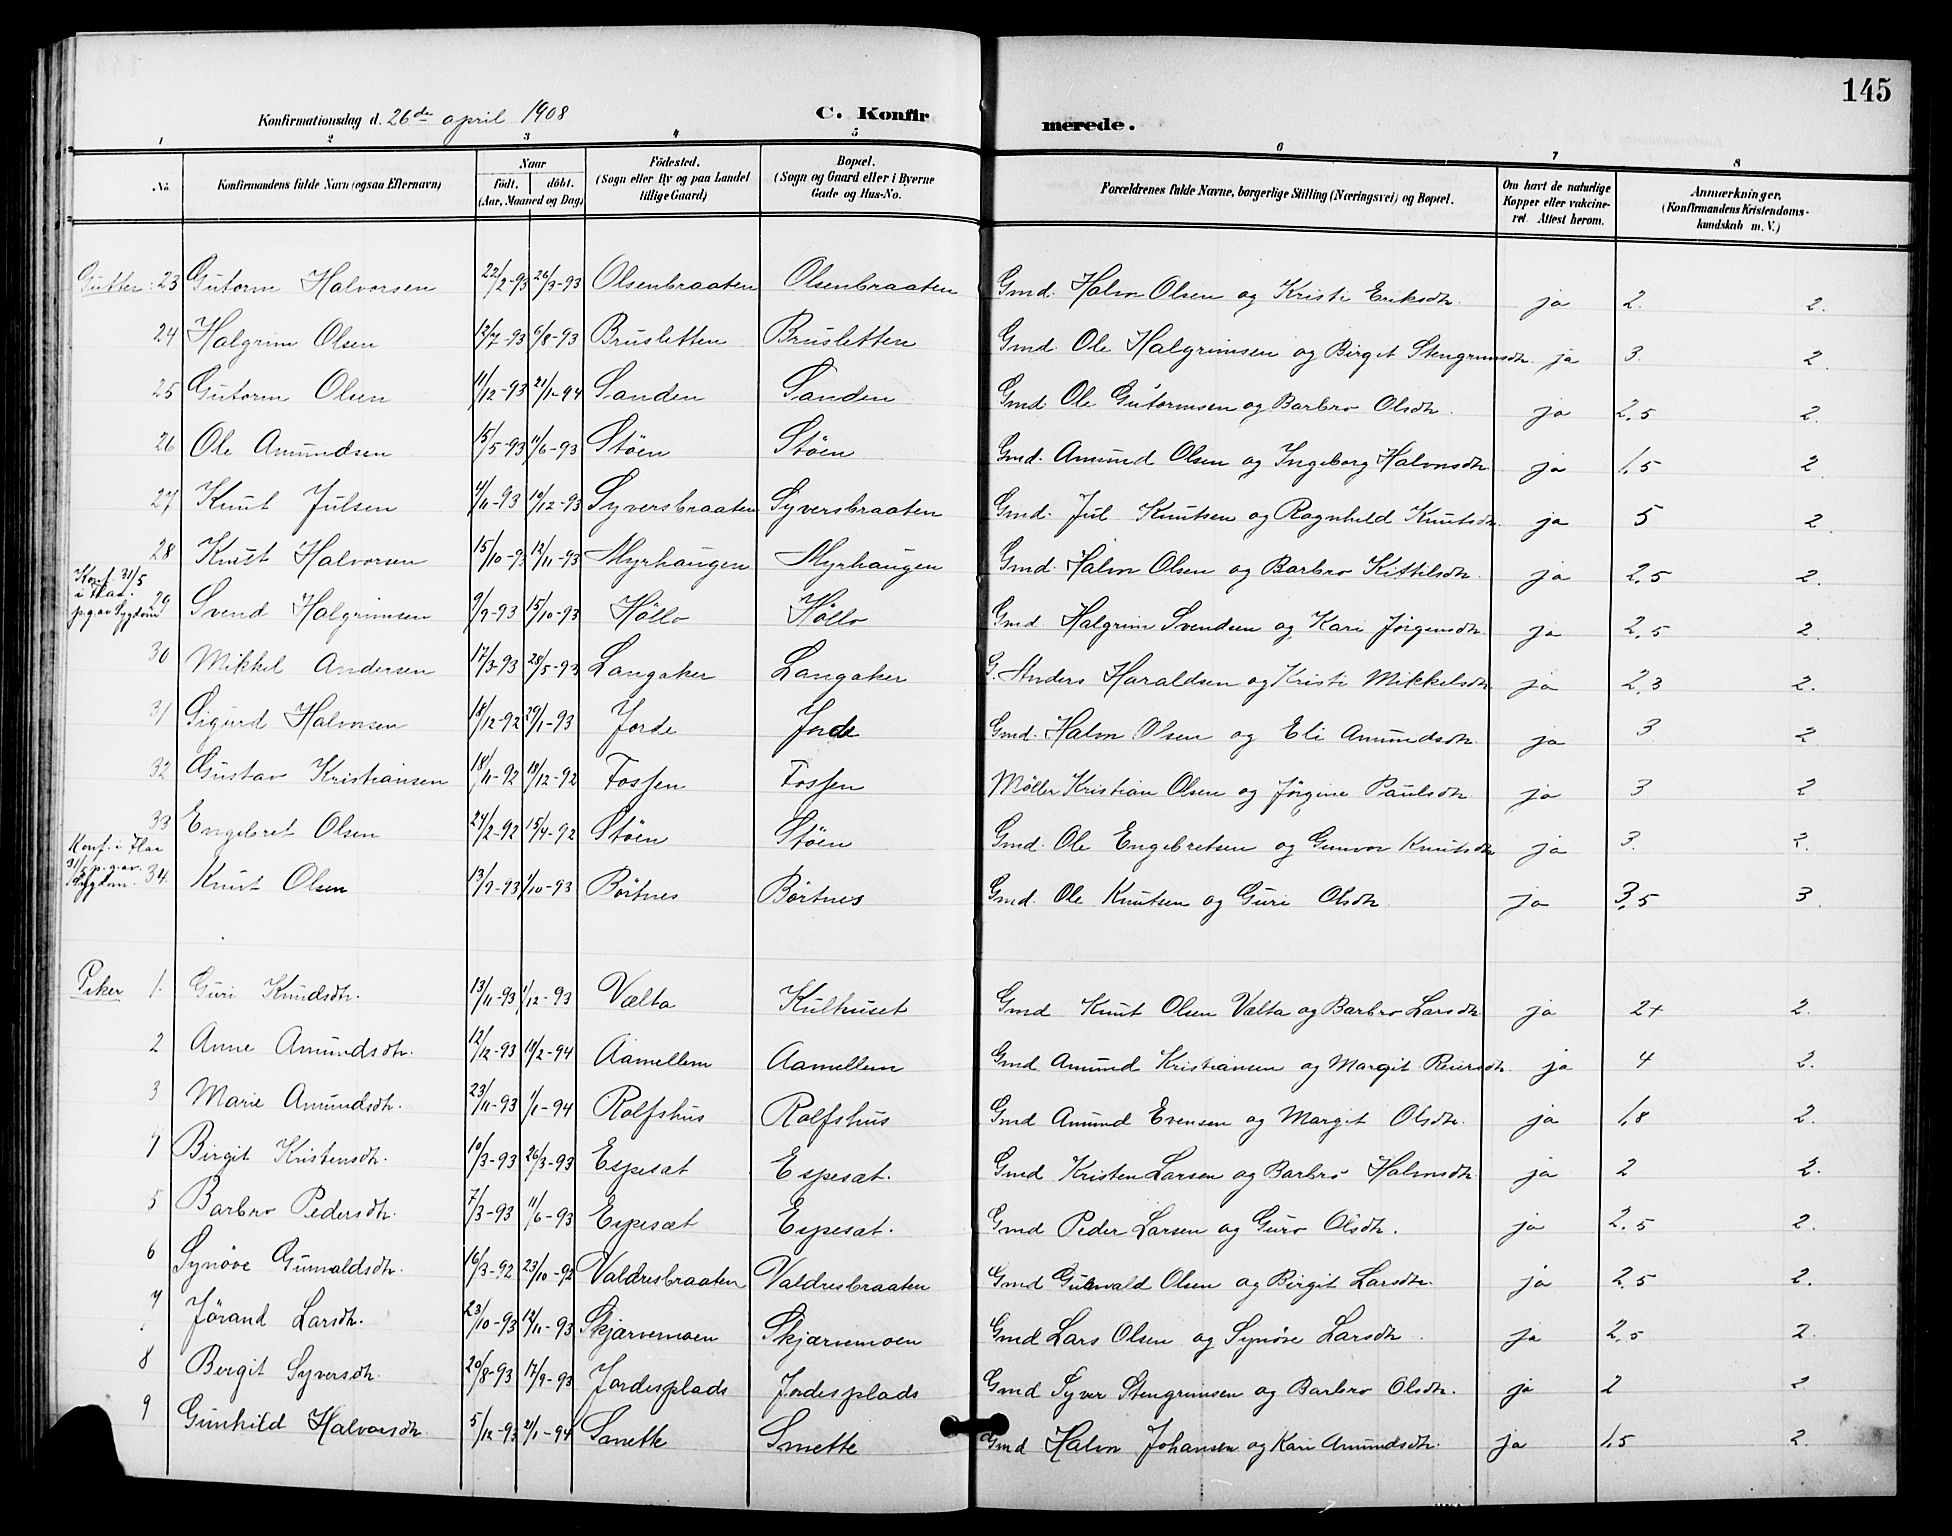 145
Konfirmationsdag d. 26de april 1908
C. Konfirmerede.
1 2 3 4 5 6 7 8
No. Konfirmandens fulde Navn (ogsaa Efternavn) Naar født. døbt. (Aar, Maaned og Dag) Fødested. (Sogn eller By og paa Landet tillige Gaard) Bopæl. (Sogn og Gaard eller i Byerne Gade og Hus-No. Forældrenes fulde Navne, borgerlige Stilling (Næringsvei) og Bopæl. Om havt de naturlige Kopper eller vakcineret. Attest herom. Anmærkninger, (Konfirmandens Kristendomskundskab m. V.)
Gutter: 23 Gutorm Halvorsen 22/2-93 26/3-93 Olsenbraaten Olsenbraaten Gmd. Halvor Olsen og Kristi Eriksdtr. ja 2. 2.
24 Halgrim Olsen 12/7-93 6/8-93 Brusletten Brusletten Gmd. Ole Halgrimsen og Birgit Stengrimsdtr. ja 3. 2.
25 Gutorm Olsen 11/12-93 21/1-94 Sanden Sanden Gmd. Ole Gutormsen og Barbro Olsdtr. ja 2,5 2.
26 Ole Amundsen 15/5-93 11/6-93 Støen Støen Gmd. Amund Olsen og Ingeborg Halvorsdtr. ja 1,5 2
27 Knut Julsen 4/11-93 10/12-93 Syversbraaten Syversbraaten Gmd. Jul Knutsen og Ragnhild Knutsdtr. ja 5 2
28 Knut Halvorsen 15/10-93 12/11-93 Myrhaugen Myrhaugen Gmd. Halvor Olsen og Barbro Kittilsdtr. ja 2,5 2.
Konf. 31/5 i Flaa p.g.av sygdom 29 Svend Halgrimsen 9/9-93 15/10-93 Höllo Höllo Gmd. Halgrim Svendsen og Kari Jørgensdtr. ja 2,5 2.
30 Mikkel Andersen 17/3-93 28/5-93 Langaker Langaker G. Anders Haraldsen og Kristi Mikkelsdtr. ja 2,3 2.
31 Sigurd Halvorsen 18/12-92 29/1-93 Jorde Jorde Gmd. Halvor Olsen og Eli Amundsdtr. ja 3 2
32 Gustav Kristiansen 18/11-92 18/12-92 Fossen Fossen Møller Kristian Olsen og Jørgine Paulsdtr. ja 3 2
33 Engebret Olsen 24/2-92 15/4-92 Støen Støen Gmd. Ole Engebretsen og Gunvor Knutsdtr ja 3. 2.
Konf. i Flaa 31/5 p.g.av. sygdom. 34. Knut Olsen 13/9-93 1/10-93 Børtnes Børtnes Gmd. Ole Knutsen og Guri Olsdtr ja 3,5 3.
Piker 1. Guri Knudsdtr. 13/11-93 1/12-93 Vælta Kulhuset Gmd Knut Olsen Vælta og Barbro Larsdtr. ja 2+ 2.
2 Anne Amundsdtr. 12/12-93 18/2-94 Aamellem Aamellem Gmd Amund Kristiansen og Margit Reiersdtr. ja 4 2.
3 Marie Amundsdtr. 23/11-93 1/1-94 Rolfshus Rolfshus Gmd Amund Evensen og Margit Olsdtr. ja 1,8 2.
4 Birgit Kristensdtr. 10/3-93 26/3-93 Espesæt Espesæt. Gmd Kristen Larsen og Barbro Halvorsdtr. ja 2 2.
5 Barbro Pedersdtr. 7/3-93 11/6-93 Espesæt Espesæt. Gmd Peder Larsen og Guro Olsdtr. ja 2,5 2.
6 Synøve Gunvaldsdtr. 16/3-92 23/10-92 Valdresbraaten Valdresbraaten Gmd Gunvald Olsen og Birgit Larsdtr. ja 2,5 2.
7 Jørand Larsdtr. 23/10-93 12/11-93 Skjærvemoen Skjærvemoen Gmd Lars Olsen og Synøve Larsdtr. ja 2,5 2.
8 Bergit Syversdtr. 20/8-93 17/9-93 Jordesplads Jordesplads Gmd Syver Stengrimsen og Barbro Olsdtr. ja 2 2
9 Gunhild Halvorsdtr. 5/12-93 21/1-94 Smette Smette Gmd Halvor Johansen og Kari Amundsdtr. ja 1,5 2.